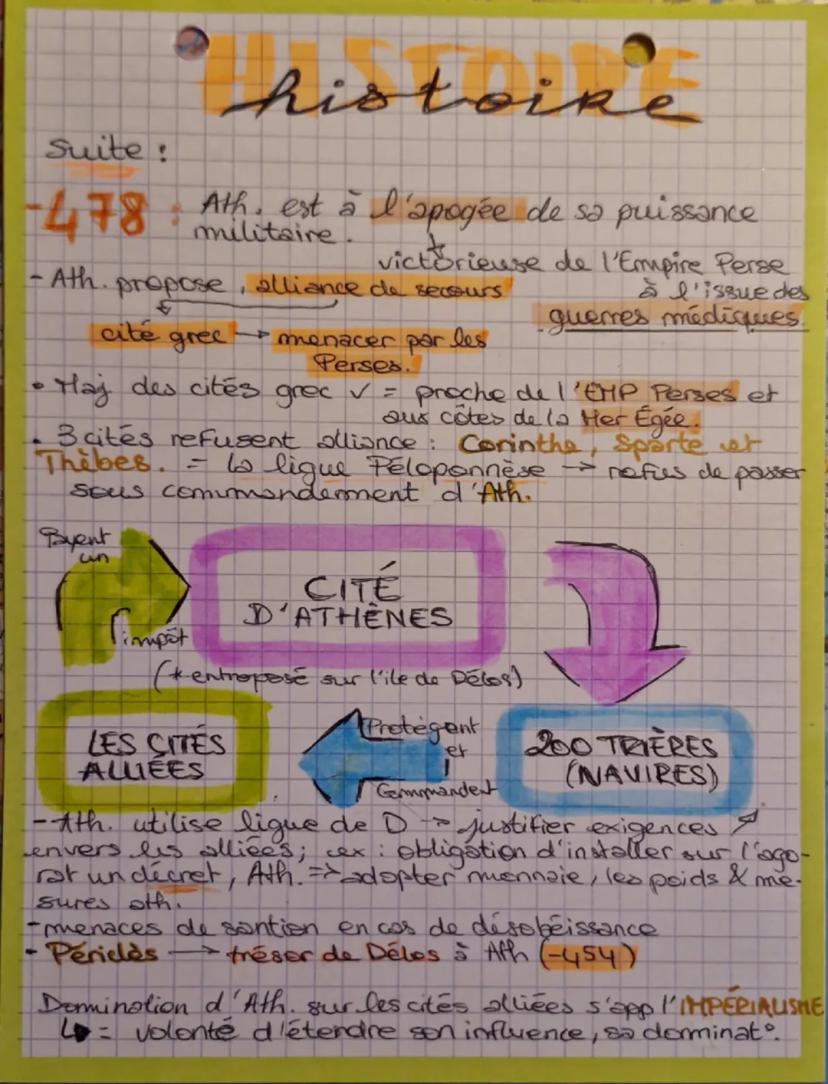 HISTOIRE
histoire
Suite :
-478 : Ath. est à l'apogée de sa puissance
militaire.
victorieuse de l'Empire Perse
- Ath. propose, alliance de secours
à l'issue des
guerres médiques.
cité grec → menacer par les
Perses.
• Maj des cités grec ✓ = proche de l'EMP Perses et
aux côtes de la Mer Égée.
• 3 cités refusent alliance : Corinthe, Sparte et
Thèbes. = la ligue Péloponnèse → refus de passer
sous commandement d'Ath.
Payent
un
impôt
CITÉ
D'ATHÈNES
(* entroposé sur l'ile de Délos)
LES CITÉS
ALLIÉES
Protègent
et
Commandent
200 TRIÈRES
(NAVIRES)
- Ath. utilise ligue de D → justifier exigences ↗
envers les alliées; ex : obligation d'installer sur l'ago-
rat un décret, Ath. => adopter monnaie, les poids & me-
sures ath.
- menaces de santion en cas de désobéissance
- Périclès → trésor de Délos à Ath (-454)
Domination d'Ath. sur les cités alliées s'app l'IMPÉRIALISME
↳ = volonté d'étendre son influence, sa dominat°.